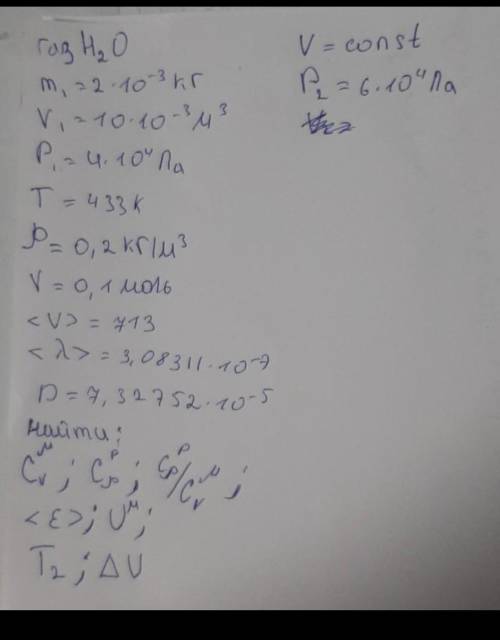 газ H₂O
m₁ = 2·10⁻³ кг
V₁ = 10·10⁻³ м³
P₁ = 4·10⁴ Па
T = 433 к
ρ = 0,2 кг/м³
V = 0,1 моль
<V> = 713
<λ> = 3,08311·10⁻⁷
D = 7,32752·10⁻⁵
найти:
Cᵥᴹ ; Cₚᴾ ; Cₚᴾ/Cᵥᴹ ;
<ε>; Uᴹ;
T₂ ; ΔU
V = const
P₂ = 6·10⁴ Па